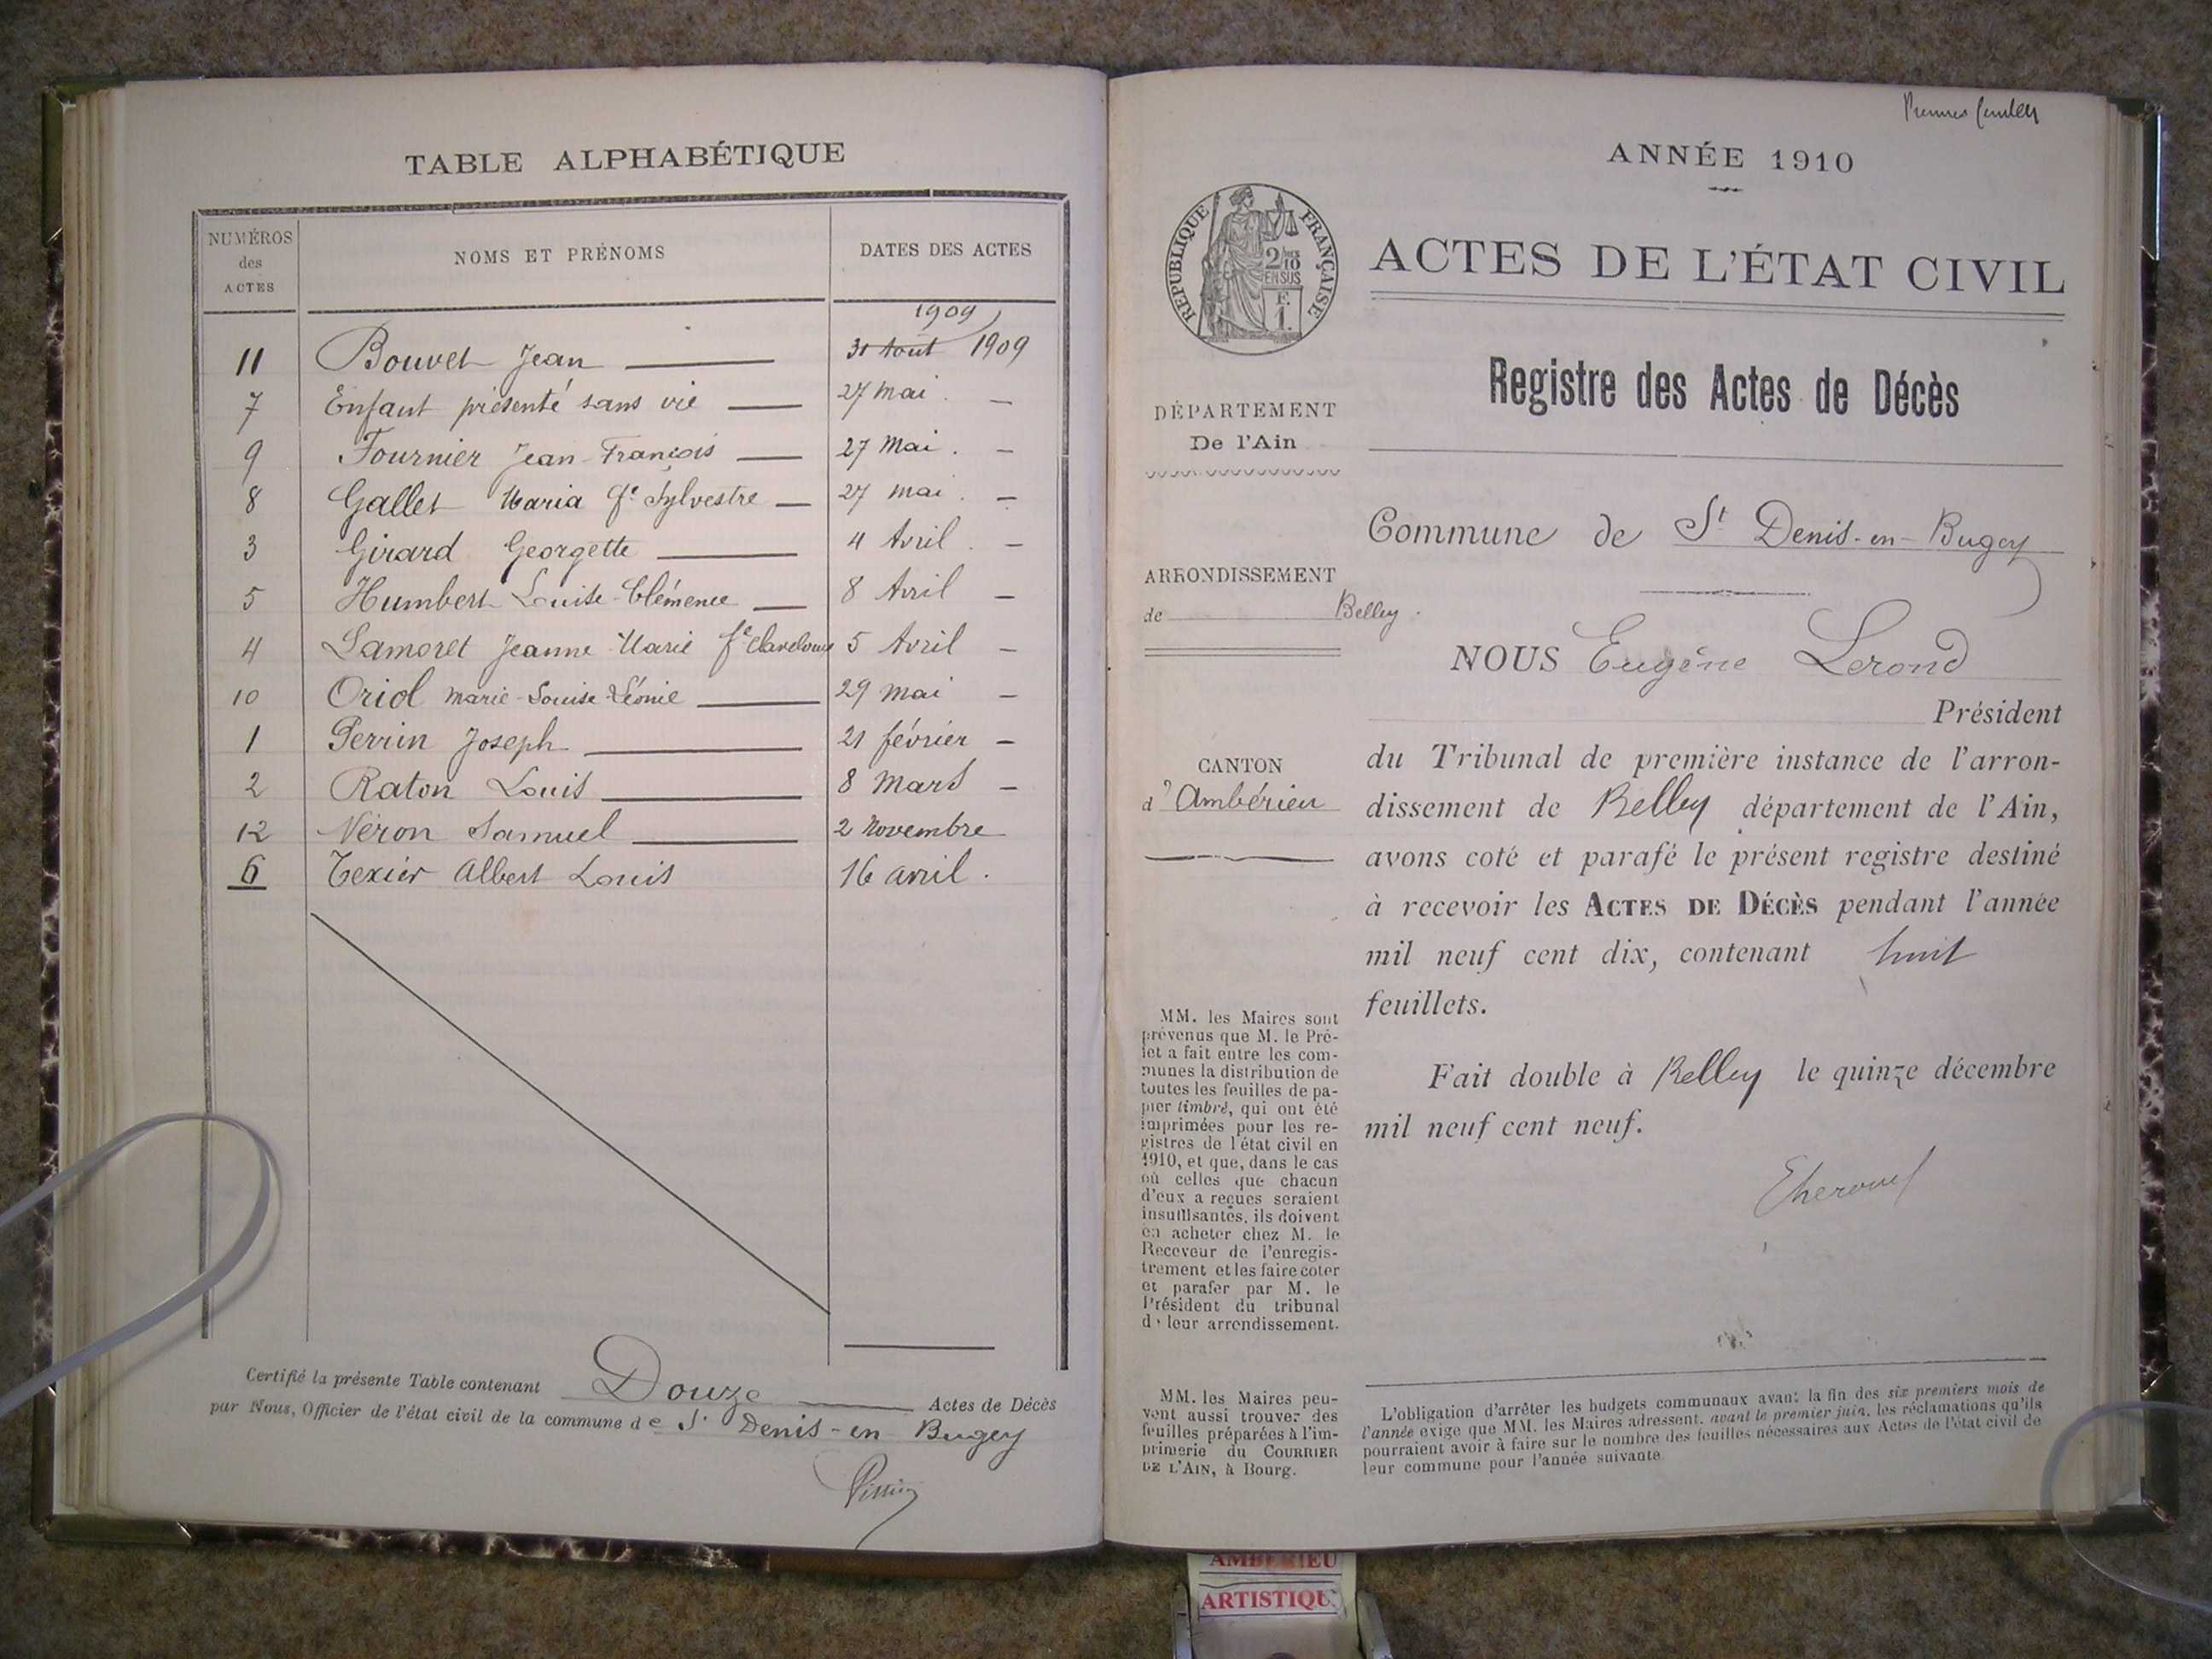 TABLE ALPHABÉTIQUE
NUMÉROS
des
ACTES
NOMS ET PRÉNOMS
DATES DES ACTES
1909
11 Bouvet Jean 31 Aout 1909
7 Enfant présenté sans vie 27 mai. —
9 Fournier Jean-François 27 Mai. —
8 Gallet Maria fe Sylvestre 27 mai. —
3 Girard Georgette 4 Avril. —
5 Humbert Louise-Clémence 8 Avril —
4 Lamoret Jeanne-Marie fe 5 Avril —
10 Oriol Marie-Louise-Léonie 29 mai —
1 Perrin Joseph 21 février —
2 Raton Louis 8 Mars —
12 Néron Samuel 2 Novembre
6 Texier Albert Louis 16 avril.
Certifié la présente Table contenant Douze Actes de Décès
par Nous, Officier de l'état civil de la commune de St Denis-en-Bugey
ANNÉE 1910
RÉPUBLIQUE FRANÇAISE
2/10
EN SUS
F.
1.
ACTES DE L'ÉTAT CIVIL
Registre des Actes de Décès
DÉPARTEMENT
De l'Ain
Commune de St Denis-en-Bugey
ARRONDISSEMENT
de Belley.
NOUS Eugène Lerond
Président
CANTON
d'Ambérieu
du Tribunal de première instance de l'arron-
dissement de Belley département de l'Ain,
avons coté et parafé le présent registre destiné
à recevoir les ACTES DE DÉCÈS pendant l'année
mil neuf cent dix, contenant huit
feuillets.
Fait double à Belley le quinze décembre
mil neuf cent neuf.
MM. les Maires sont
prévenus que M. le Pré-
fet a fait entre les com-
munes la distribution de
toutes les feuilles de pa-
pier timbré, qui ont été
imprimées pour les re-
gistres de l'état civil en
1910, et que, dans le cas
où celles que chacun
d'eux a reçues seraient
insuffisantes, ils doivent
en acheter chez M. le
Receveur de l'enregis-
trement et les faire coter
et parafer par M. le
Président du tribunal
de leur arrondissement.
MM. les Maires peu-
vent aussi trouver des
feuilles préparées à l'im-
primerie du COURRIER
DE L'AIN, à Bourg.
L'obligation d'arrêter les budgets communaux avant la fin des six premiers mois de
l'année exige que MM. les Maires adressent, avant le premier juin, les réclamations qu'ils
pourraient avoir à faire sur le nombre des feuilles nécessaires aux Actes de l'état civil de
leur commune pour l'année suivante
AMBERIEU
ARTISTIQU